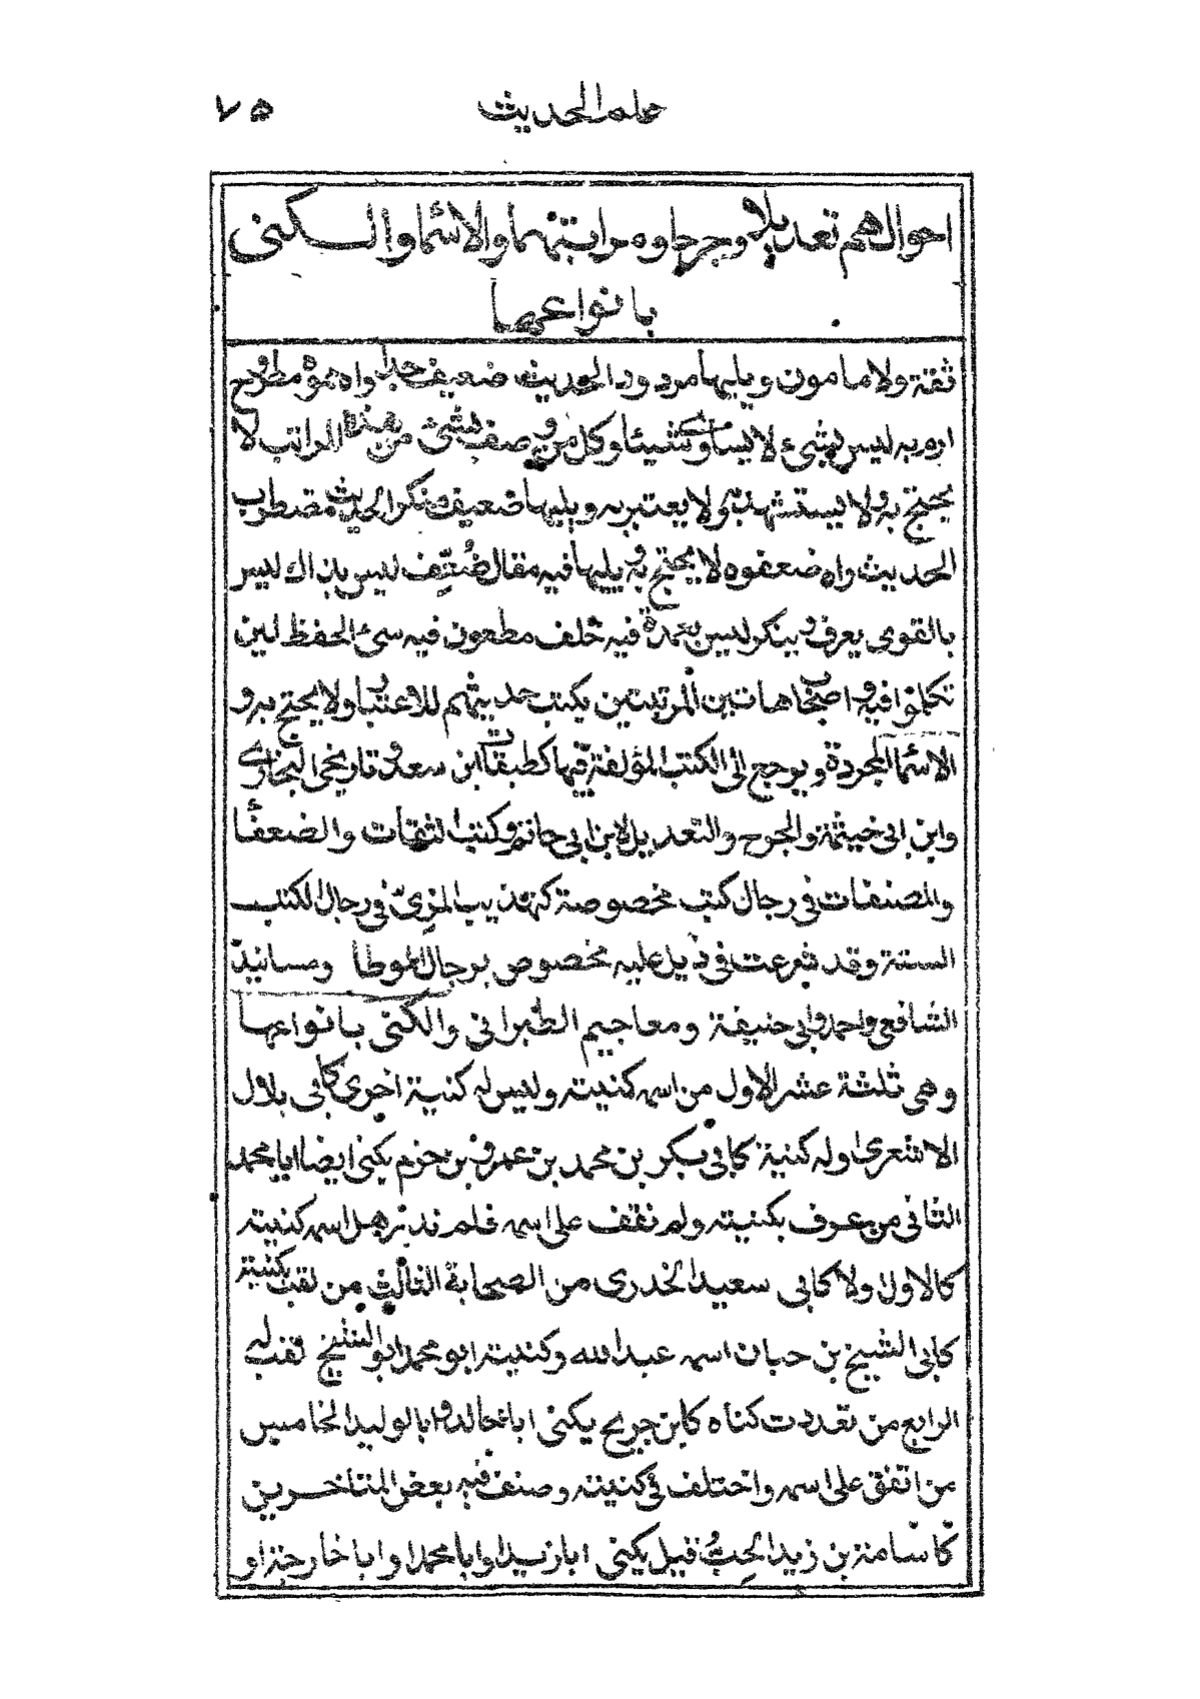 علم الحديث ٧٥
احوالهم تعديلا وجرحا ومراتبهما والاسما والكنى
بانواعها
ثقة ولا مامون ويليها مردود الحديث ضعيف جدا واه بمرة مطروح
ارم به ليس بشيء لا يساوي شيئا وكل من وصف بشئ من هذه المراتب لا
يحتج به ولا يستشهد به ولا يعتبر به ويليها ضعيف منكر الحديث مضطرب
الحديث واه ضعفوه لا يحتج به ويليها فيه مقال ضُعِّف ليس بذاك ليس
بالقوى يعرف وينكر ليس بعمدة فيه خلف مطعون فيه سئ الحفظ لين
تكلموا فيه واصحاب هاتين المرتبتين يكتب حديثهم للاعتبار ولا يحتج به و
الاسما المجردة ويرجع الى الكتب المؤلفة فيها كطبقات ابن سعد وتاريخى البخارى
وابن ابى خيثمة والجرح والتعديل لابن ابي حاتم وكتب الثقات والضعفاء
والمصنفات فى رجال كتب مخصوصة كتهذيب المزىّ فى رجال الكتب
الستة وقد شرعت فى ذيل عليه مخصوص برجال الموطا ومسانيد
الشافعي واحمد وابي حنيفة ومعاجيم الطبرانى والكنى بانواعها
وهى ثلثة عشر الاول من اسمه كنيته وليس له كنية اخرى كابى بلال
الاشعرى اوله كنية كابى بكر بن محمد بن عمرو بن حزم يكنى ايضا ابا محمد
الثانى من عرف بكنيته ولم نقف على اسمه فلم ندر هل اسمه كنيته
كالاول اولا كابى سعيد الخدرى من الصحابة الثالث من لقب بكنيته
كابى الشيخ بن حبان اسمه عبد الله وكنيته ابو محمد وابو الشيخ لقب له
الرابع من تعددت كناه كابن جريج يكنى ابا خالد وابا الوليد الخامس
من اتفق على اسمه واختلف فى كنيته وصنف فيه بعض المتاخرين
كاسامة بن زيد الحِبّ قيل يكنى ابا زيد او ابا محمد او ابا خارجة او